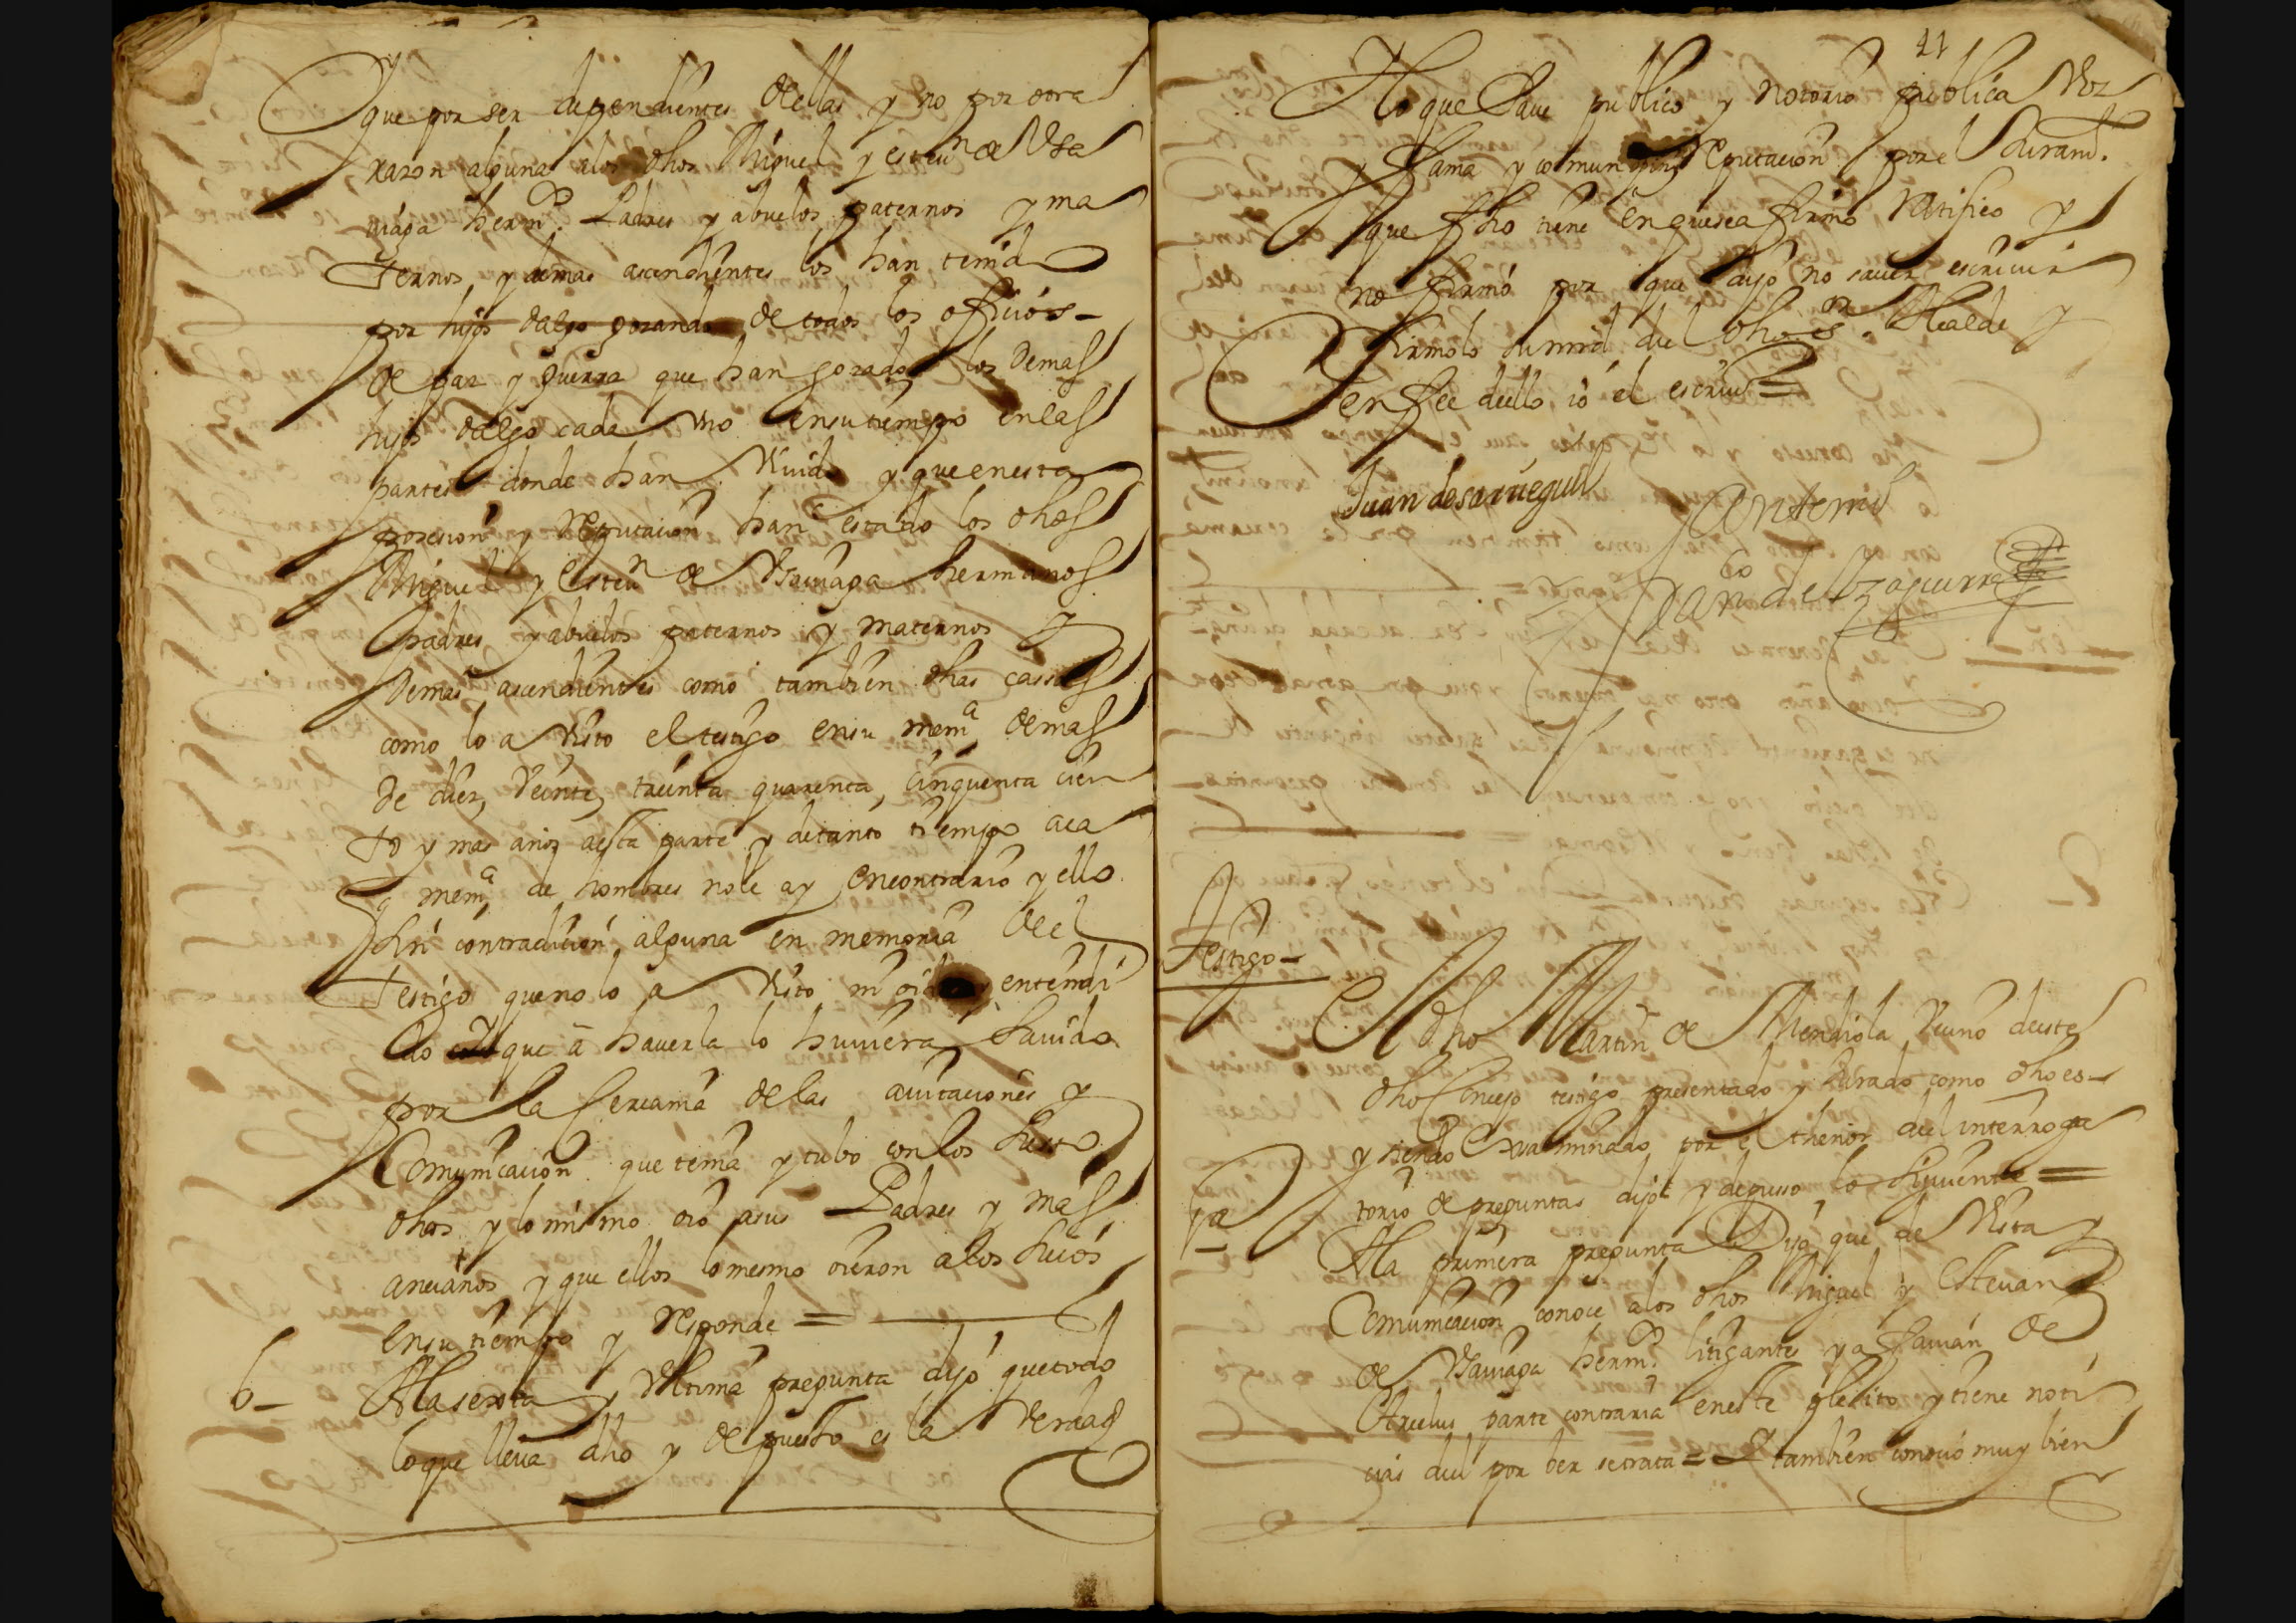 que por ser dependientes dellas y no por otra
razon alguna a los dhos Miguel y esteun de Vsa
uiaga herm.os Padres y abuelos paternos y ma
ternos, y demas ascendientes los han tenido
por hijos dalgo gozando de todos los offiçios
de paz y guerra que han gozado los demas
hijos dalgo cada vno en su tiempo en las
partes donde han viuido y que en esta
posesion y Reputacion han estado los dhos
Miguel y esteun de Vsauiaga hermanos
padres y abuelos paternos y maternos y
demas ascendientes como tambien dhas cassas
como lo a visto el testigo en su mem.a de mas
de diez, veinte, treinta quarenta, çinquenta cien
to y mas años a esta parte y de tanto tiempo aca
q mem.a de hombres no le ay en contrario y ello
sin contradicion alguna en memoria de el
testigo que no lo a visto ni oido entendi
do que a hauerla lo huuiera sauido
por la Cercania de las auitaciones y
Comunicacion que tenia y tubo con los suso
dhos y lo mismo oio a sus Padres y mas
ancianos y que ellos lo mesmo oieron a los suios
en su tiempo y responde =
6 — A la sexta y vltima pregunta dijo que todo
lo que lleua dho y depuesto es la verdad
11
y lo que saue publico y notorio publica voz
y fama y comun Reputacion por el Juram.to
que fho tiene en que se afirmo ratifico y
no firmó por que dijo no sauer escriuir
firmolo su mrd del dho s.or Alcalde y
en fee dello io el escriu.o =
Juan de sarruegui
Ante mi
Fran.co de Yzaguirre
Testigo —
El dho Martin de Mendiola vecino deste
dho Concejo testigo presentado y Jurado como dho es
y siendo examinado por el thenor del interroga
torio de preguntas dijo y depusso lo siguiente =
1a — A la primera pregunta Dijo que de vista y
Comunicacion conoce a los dhos Miguel y Esteuan
de Vsauiaga herm.os litigantes y a Fauian de
Arcelus parte contraria en este pleito y tiene noti
cias del por ber se trata = y tambien conoció muy bien